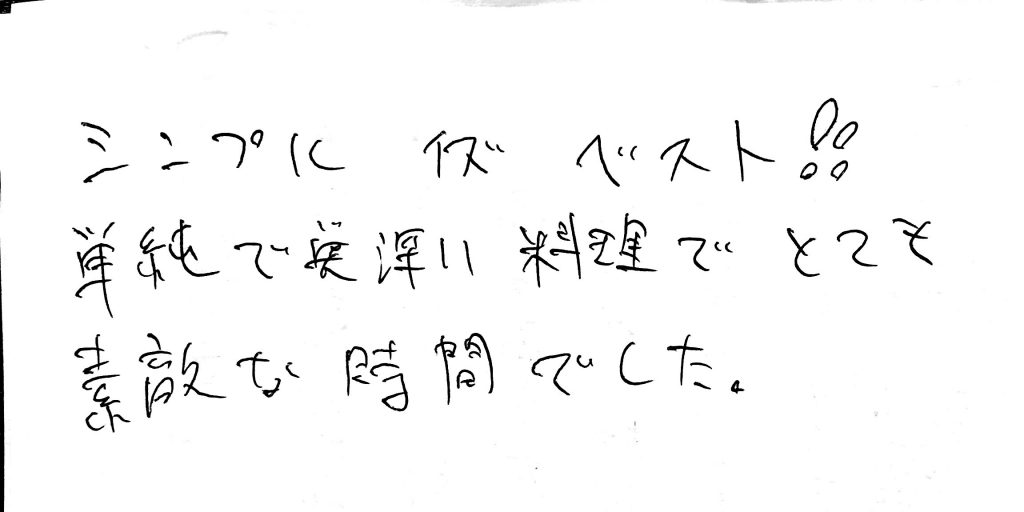 シンプに イズ ベスト!!
単純で奥深い料理でとても
素敵な時間でした。